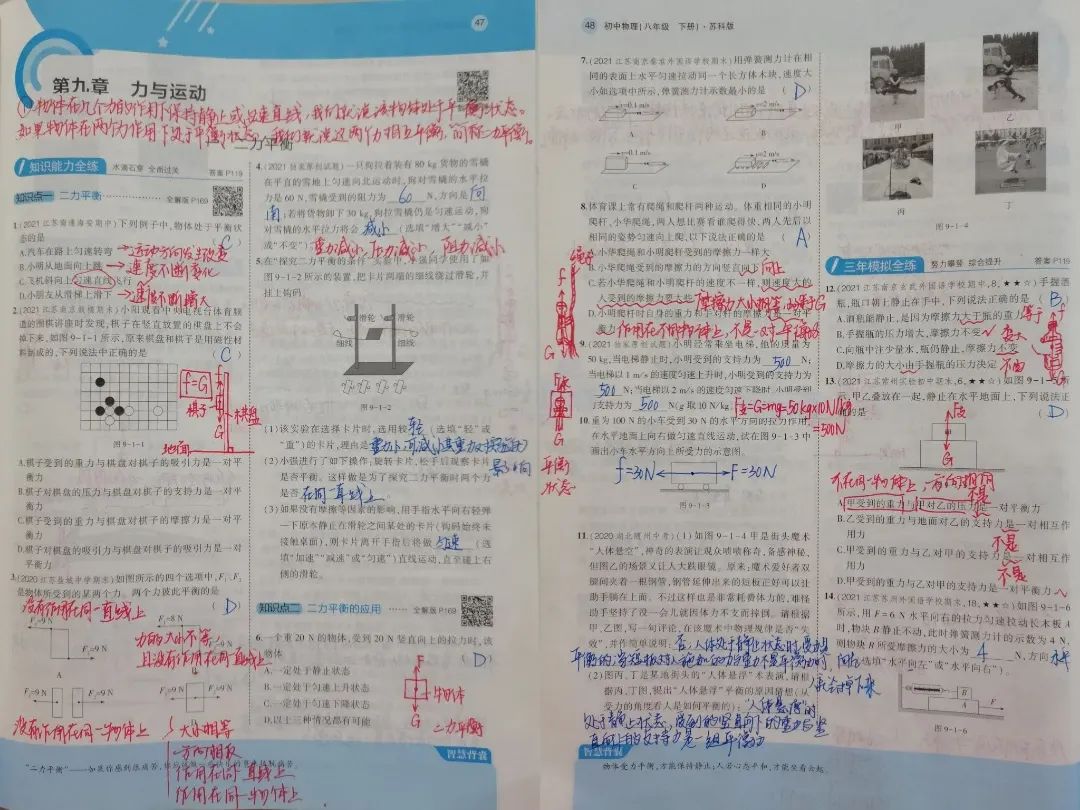 47
第九章 力与运动
①物体在几个力的作用下保持静止或匀速直线，我们就说该物体处于平衡状态。
如果物体在两力作用下处于平衡状态，我们就说这两个力相互平衡，简称二力平衡。
二力平衡
知识能力全练 水滴石穿 全面过关 答案P119
知识点一 二力平衡 全解版P169
1.(2021江苏南通海安期中)下列例子中,物体处于平衡状
态的是 ( C )
A.汽车在路上匀速转弯 →运动方向发生改变
B.小明从地面向上跳 →速度不断变化
C.飞机斜向上匀速直线飞行
D.小朋友从滑梯上滑下 →速度不断增大
的围棋讲座时发现,棋子在竖直放置的棋盘上不会
掉下来,如图9-1-1所示,原来棋盘和棋子是用磁性材
料制成的,下列说法中正确的是 ( C )
f=G
棋子
棋盘
地面
G
图9-1-1
A.棋子受到的重力与棋盘对棋子的吸引力是一对平
衡力
B.棋子对棋盘的压力与棋盘对棋子的支持力是一对平
衡力
C.棋子受到的重力与棋盘对棋子的摩擦力是一对平
衡力
D.棋子对棋盘的吸引力与棋盘对棋子的吸引力是一对
平衡力
3.(2020江苏盐城中学期末)如图所示的四个选项中,F₁、F₂
是物体所受到的某两个力。两个力彼此平衡的是
( D )
没有作用在同一直线上
F₁=8 N
F₂=9 N
A
力的大小不等
且没有作用在同一直线上
F₁=9 N
F₁=9 N
没有作用在同一物体上
大小相等
方向相反
作用在同一直线上
作用在同一物体上
4.(2021独家原创试题)一只狗拉着装有80 kg货物的雪橇
在平直的雪地上匀速向北运动时,狗对雪橇的水平拉
力是60 N,雪橇受到的阻力为 60 N,方向是 向
南;若将货物卸下30 kg,狗拉雪橇仍是匀速运动,狗
对雪橇的水平拉力将会 减小 (选填“增大”“减小”
或“不变”)。重力减小 压力减小 阻力减小
5.在“探究二力平衡的条件”实验中,小强同学使用了如
图9-1-2所示的装置,把卡片两端的细线绕过滑轮,并
挂上钩码。
滑轮 滑轮
细线 细线
图9-1-2
(1)该实验在选择卡片时,选用较 轻 (选填“轻”或
“重”)的卡片,理由是
(2)小强进行了如下操作:旋转卡片,松手后观察卡片
是否平衡。这样做是为了探究二力平衡时两个力
是否 在同一直线上
(3)如果没有摩擦等因素的影响,用手指水平向右轻弹
一下原本静止在滑轮之间某处的卡片(钩码始终未
接触桌面),则卡片离开手指后将做 匀速 (选
填“加速”“减速”或“匀速”)直线运动,直至碰上右
侧的滑轮。
知识点二 二力平衡的应用 全解版P169
6.一个重20 N的物体,受到20 N竖直向上的拉力时,该
物体 ( D )
A.一定处于静止状态
B.一定处于匀速上升状态
C.一定处于匀速下降状态
D.以上三种情况都有可能
F
物体
G
二力平衡
智慧背囊
48 初中物理(八年级 下册)·苏科版
7.(2021江苏南京秦淮外国语学校期末)用弹簧测力计在相
同的表面上水平匀速拉动同一个长方体木块,速度大
小如选项中所示,弹簧测力计示数最小的是 ( D )
v=0.1 m/s
v=2 m/s
A
B
v=0.1 m/s
v=2 m/s
C
D
8.体育课上常有爬绳和爬杆两种运动。体重相同的小明
爬杆,小华爬绳,两人想比赛看谁爬得快,两人先后以
相同的姿势匀速向上爬,以下说法正确的是 ( A )
A.小华爬绳和小明爬杆受到的摩擦力一样大
B.小华爬绳受到的摩擦力的方向竖直向下 向上
C.若小华爬绳和小明爬杆的速度不一样,则速度大的
人受到的摩擦力要大些 摩擦力大小相等,都等于G
D.小明爬杆时自身的重力和手对杆的摩擦力是一对平
衡力 作用在不同物体上,不是一对平衡力
9.(2021独家原创试题)小明经常乘坐电梯,他的质量为
50 kg,当电梯静止时,小明受到的支持力为 500 N;
当电梯以1 m/s的速度匀速上升时,小明受到的支持力为
500 N;当电梯以2 m/s的速度匀速下降时,小明受到
支持力为 500 N(g取10 N/kg)
F支=G=mg=50kg×10N/kg
=500N
平衡
状态
10.重为100 N的小车受到30 N的水平方向的拉力作用,
在水平地面上向右做匀速直线运动,试在图9-1-3中
画出小车水平方向上所受力的示意图。
f=30N
F=30N
图9-1-3
11.(2020湖北随州中考)(1)如图9-1-4甲是街头魔术
“人体悬空”,神奇的表演让观众啧啧称奇,备感神秘,
但图乙的场景又让人大跌眼镜。原来,魔术爱好者双
腿间夹着一根钢管,钢管延伸出来的短板正好可以让
助手躺在上面。不过这样也是非常耗费体力的,难怪
助手坚持了没一会儿就因体力不支而摔倒。请根据
甲、乙图,写一句评论,在该魔术中物理规律是否“失
效”,并作简单说明:
(2)图丙、丁是某地街头的“人体悬浮”表演,请根
据丙、丁图,提出“人体悬浮”平衡的原因猜想(从
受力的角度看人是如何平衡的):
智慧背囊
物体受力平衡,方能保持静止;人若心态平和,才能坐看云起。
甲
乙
丙
丁
图9-1-4
三年模拟全练 努力攀登 综合提升 答案P119
12.(2021江苏南京玄武外国语学校期中,8,★★☆)手握酒
瓶,瓶口朝上静止在手中,下列说法正确的是 ( B )
A.酒瓶能静止,是因为摩擦力大于瓶的重力 等于
B.手握瓶的压力增大,摩擦力不变
C.向瓶中注少量水,瓶仍静止,摩擦力不变 变大
D.摩擦力的大小由手握瓶的压力决定 不由
13.(2021江苏常州实验初中期末,6,★★☆)如图9-1-5所
示,甲乙叠放在一起,静止在水平地面上,下列说法正
确的是 ( D )
F支
G
不在同一物体上,方向相同
A.甲受到的重力与甲对乙的压力是一对平衡力 不是
B.乙受到的重力与地面对乙的支持力是一对相互作
用力 不是
C.甲受到的重力与乙对甲的支持力是一对相互作
用力 不是
D.甲受到的重力与乙对甲的支持力是一对平衡力
14.(2021江苏苏州外国语学校期末,18,★★☆)如图9-1-6
所示,用F=6 N水平向右的拉力匀速拉动长木板A
时,物块B静止不动,此时弹簧测力计的示数为4 N,
则物块B所受摩擦力的大小为 4 N,方向 水平
向右 (选填“水平向左”或“水平向右”)。
B
A
图9-1-6